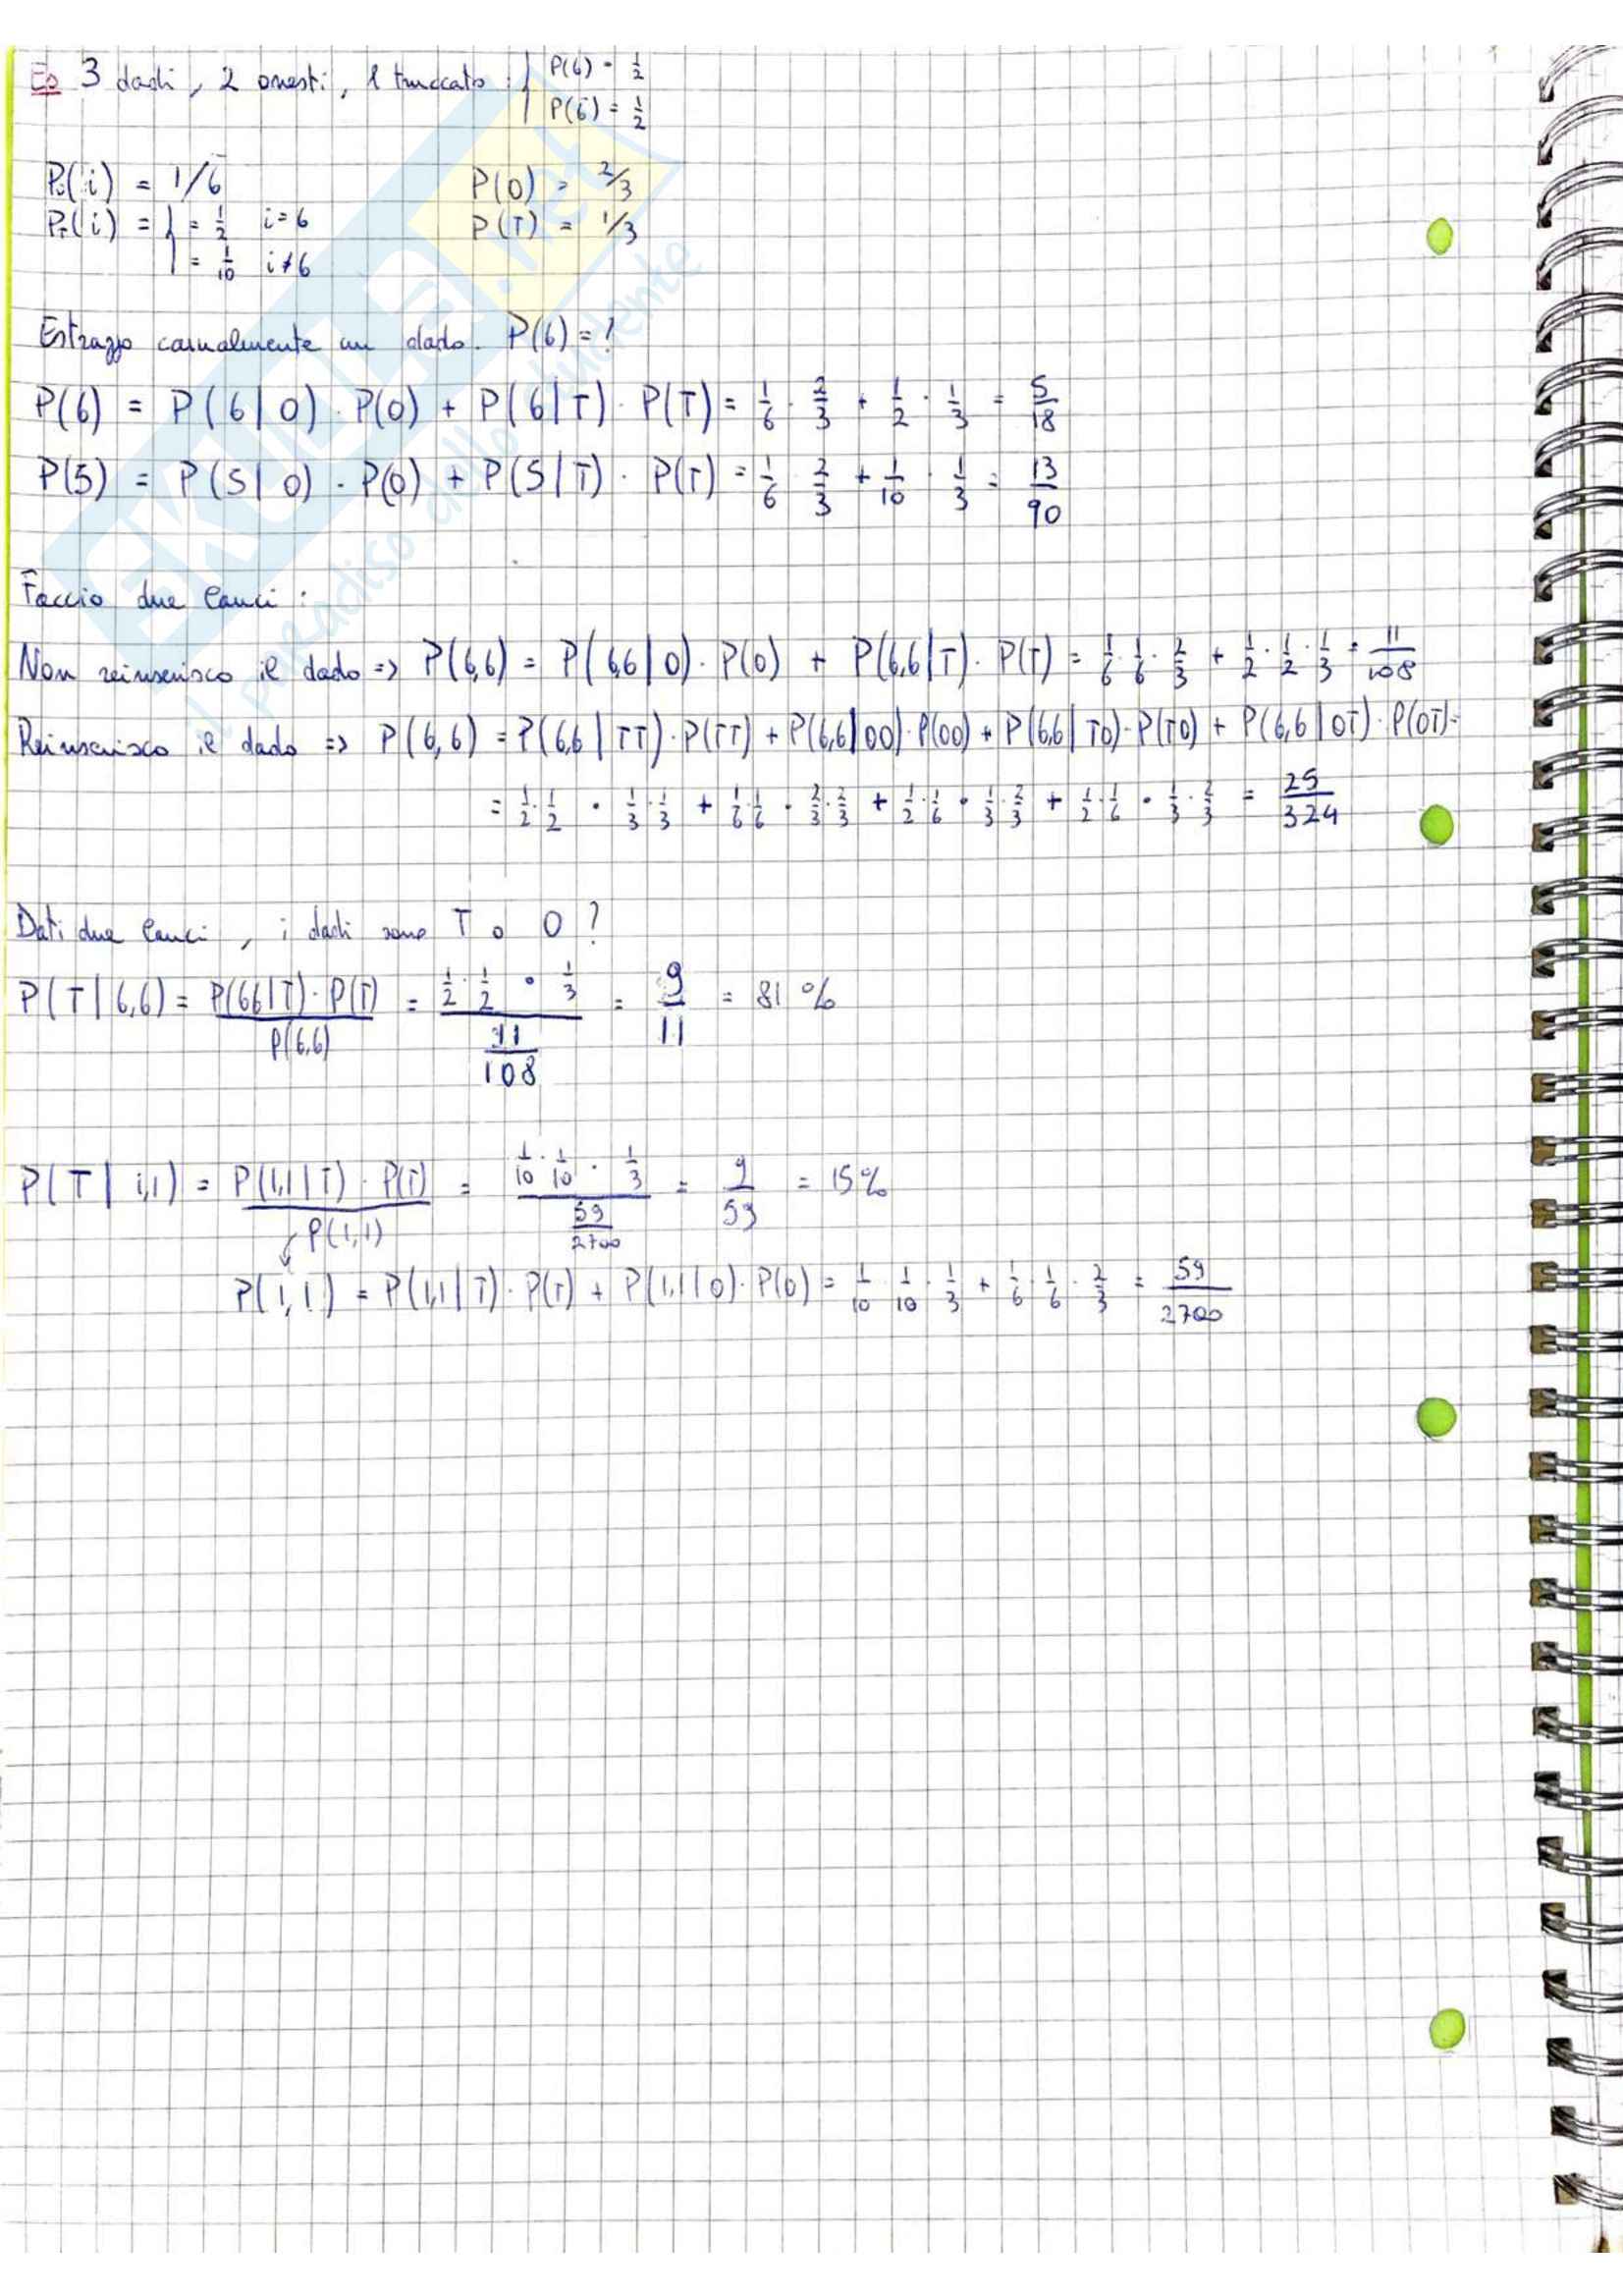 Es 3 dadi, 2 onesti, 1 truccato: { P(6) = 1/2
P(6̄) = 1/2
P₀(i) = 1/6 P(O) = 2/3
P_T(i) = { = 1/2 i=6 P(T) = 1/3
= 1/10 i≠6
Estraggo casualmente un dado. P(6) = ?
P(6) = P(6|O) · P(O) + P(6|T) · P(T) = 1/6 · 2/3 + 1/2 · 1/3 = 5/18
P(5) = P(5|O) · P(O) + P(5|T) · P(T) = 1/6 · 2/3 + 1/10 · 1/3 = 13/90
Faccio due lanci:
Non reinserisco il dado => P(6,6) = P(6,6|O) · P(O) + P(6,6|T) · P(T) = 1/6 · 1/6 · 2/3 + 1/2 · 1/2 · 1/3 = 11/108
Reinserisco il dado => P(6,6) = P(6,6|TT) · P(TT) + P(6,6|OO) · P(OO) + P(6,6|TO) · P(TO) + P(6,6|OT) · P(OT) =
= 1/2 · 1/2 · 1/3 · 1/3 + 1/6 · 1/6 · 2/3 · 2/3 + 1/2 · 1/6 · 1/3 · 2/3 + 1/2 · 1/6 · 1/3 · 2/3 = 25/324
Dati due lanci, i dadi sono T o O?
P(T|6,6) = P(66|T) · P(T) / P(6,6) = 1/2 · 1/2 · 1/3 / 11/108 = 9/11 = 81%
P(T|1,1) = P(1,1|T) · P(T) / P(1,1) = 1/10 · 1/10 · 1/3 / 59/2700 = 9/59 = 15%
P(1,1) = P(1,1|T) · P(T) + P(1,1|O) · P(O) = 1/10 · 1/10 · 1/3 + 1/6 · 1/6 · 2/3 = 59/2700
SKUOLA.net
il paradiso dello studente